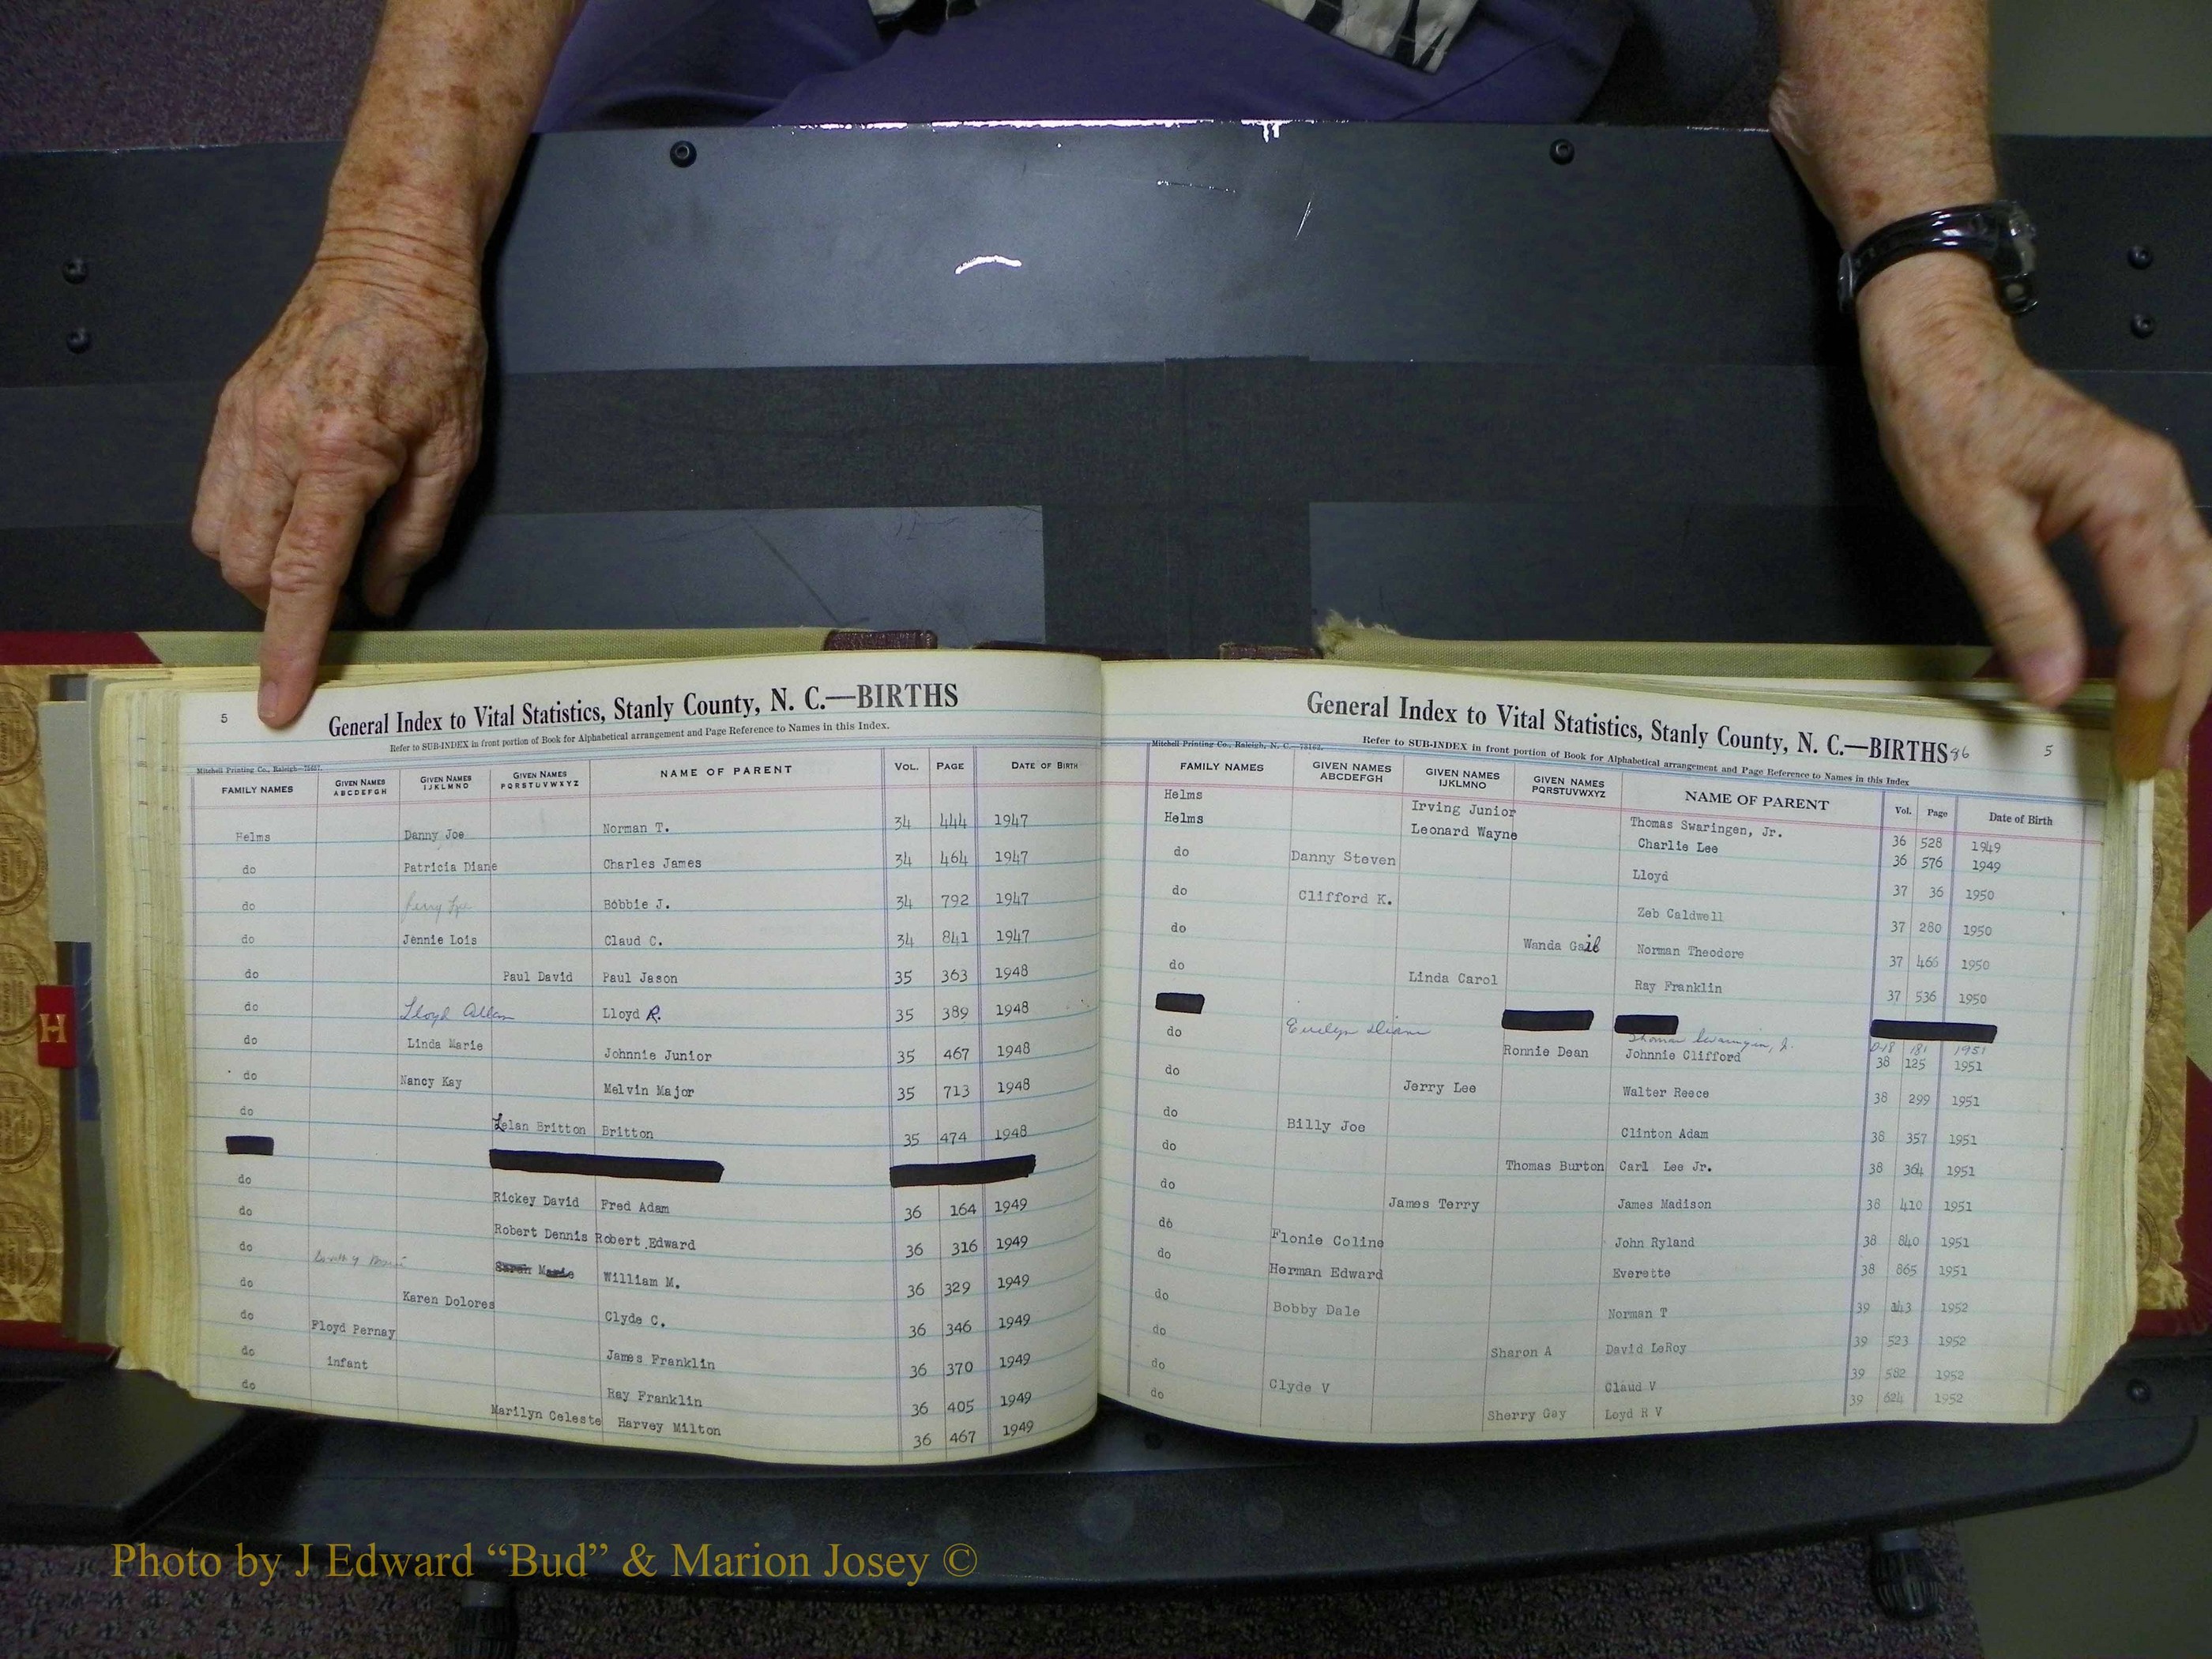 5
General Index to Vital Statistics, Stanly County, N. C.—BIRTHS
Refer to SUB-INDEX in front portion of Book for Alphabetical arrangement and Page Reference to Names in this Index.
Mitchell Printing Co., Raleigh—75657.
FAMILY NAMES GIVEN NAMES ABCDEFGH GIVEN NAMES IJKLMNO GIVEN NAMES PQRSTUVWXYZ NAME OF PARENT VOL. PAGE DATE OF BIRTH
Helms Danny Joe Norman T. 34 444 1947
do Patricia Diane Charles James 34 464 1947
do Bobbie J. 34 792 1947
do Jennie Lois Claud C. 34 841 1947
do Paul David Paul Jason 35 363 1948
do Lloyd Allan Lloyd R. 35 389 1948
do Linda Marie Johnnie Junior 35 467 1948
do Nancy Kay Melvin Major 35 713 1948
do Lelan Britton Britton 35 474 1948
do Rickey David Fred Adam 36 164 1949
do Robert Dennis Robert Edward 36 316 1949
do Sarah Marie William M. 36 329 1949
do Karen Dolores Clyde C. 36 346 1949
do Floyd Pernay James Franklin 36 370 1949
do infant Ray Franklin 36 405 1949
do Marilyn Celeste Harvey Milton 36 467 1949
General Index to Vital Statistics, Stanly County, N. C.—BIRTHS 86 5
Refer to SUB-INDEX in front portion of Book for Alphabetical arrangement and Page Reference to Names in this Index
Mitchell Printing Co., Raleigh, N. C.—75162.
FAMILY NAMES GIVEN NAMES ABCDEFGH GIVEN NAMES IJKLMNO GIVEN NAMES PQRSTUVWXYZ NAME OF PARENT Vol. Page Date of Birth
Helms Irving Junior Thomas Swaringen, Jr. 36 528 1949
Helms Leonard Wayne Charlie Lee 36 576 1949
do Danny Steven Lloyd 37 36 1950
do Clifford K. Zeb Caldwell 37 280 1950
do Wanda Gail Norman Theodore 37 466 1950
do Linda Carol Ray Franklin 37 536 1950
Evelyn Diann Thomas Swaringen, Jr. D-18 181 1951
do Ronnie Dean Johnnie Clifford 38 125 1951
do Jerry Lee Walter Reece 38 299 1951
do Billy Joe Clinton Adam 38 357 1951
do Thomas Burton Carl Lee Jr. 38 364 1951
do James Terry James Madison 38 410 1951
do Flonie Coline John Ryland 38 840 1951
do Herman Edward Everette 38 865 1951
do Bobby Dale Norman T 39 143 1952
do Sharon A David LeRoy 39 523 1952
do Clyde V Claud V 39 582 1952
do Sherry Gay Loyd R V 39 624 1952
H
Photo by J Edward “Bud” & Marion Josey ©